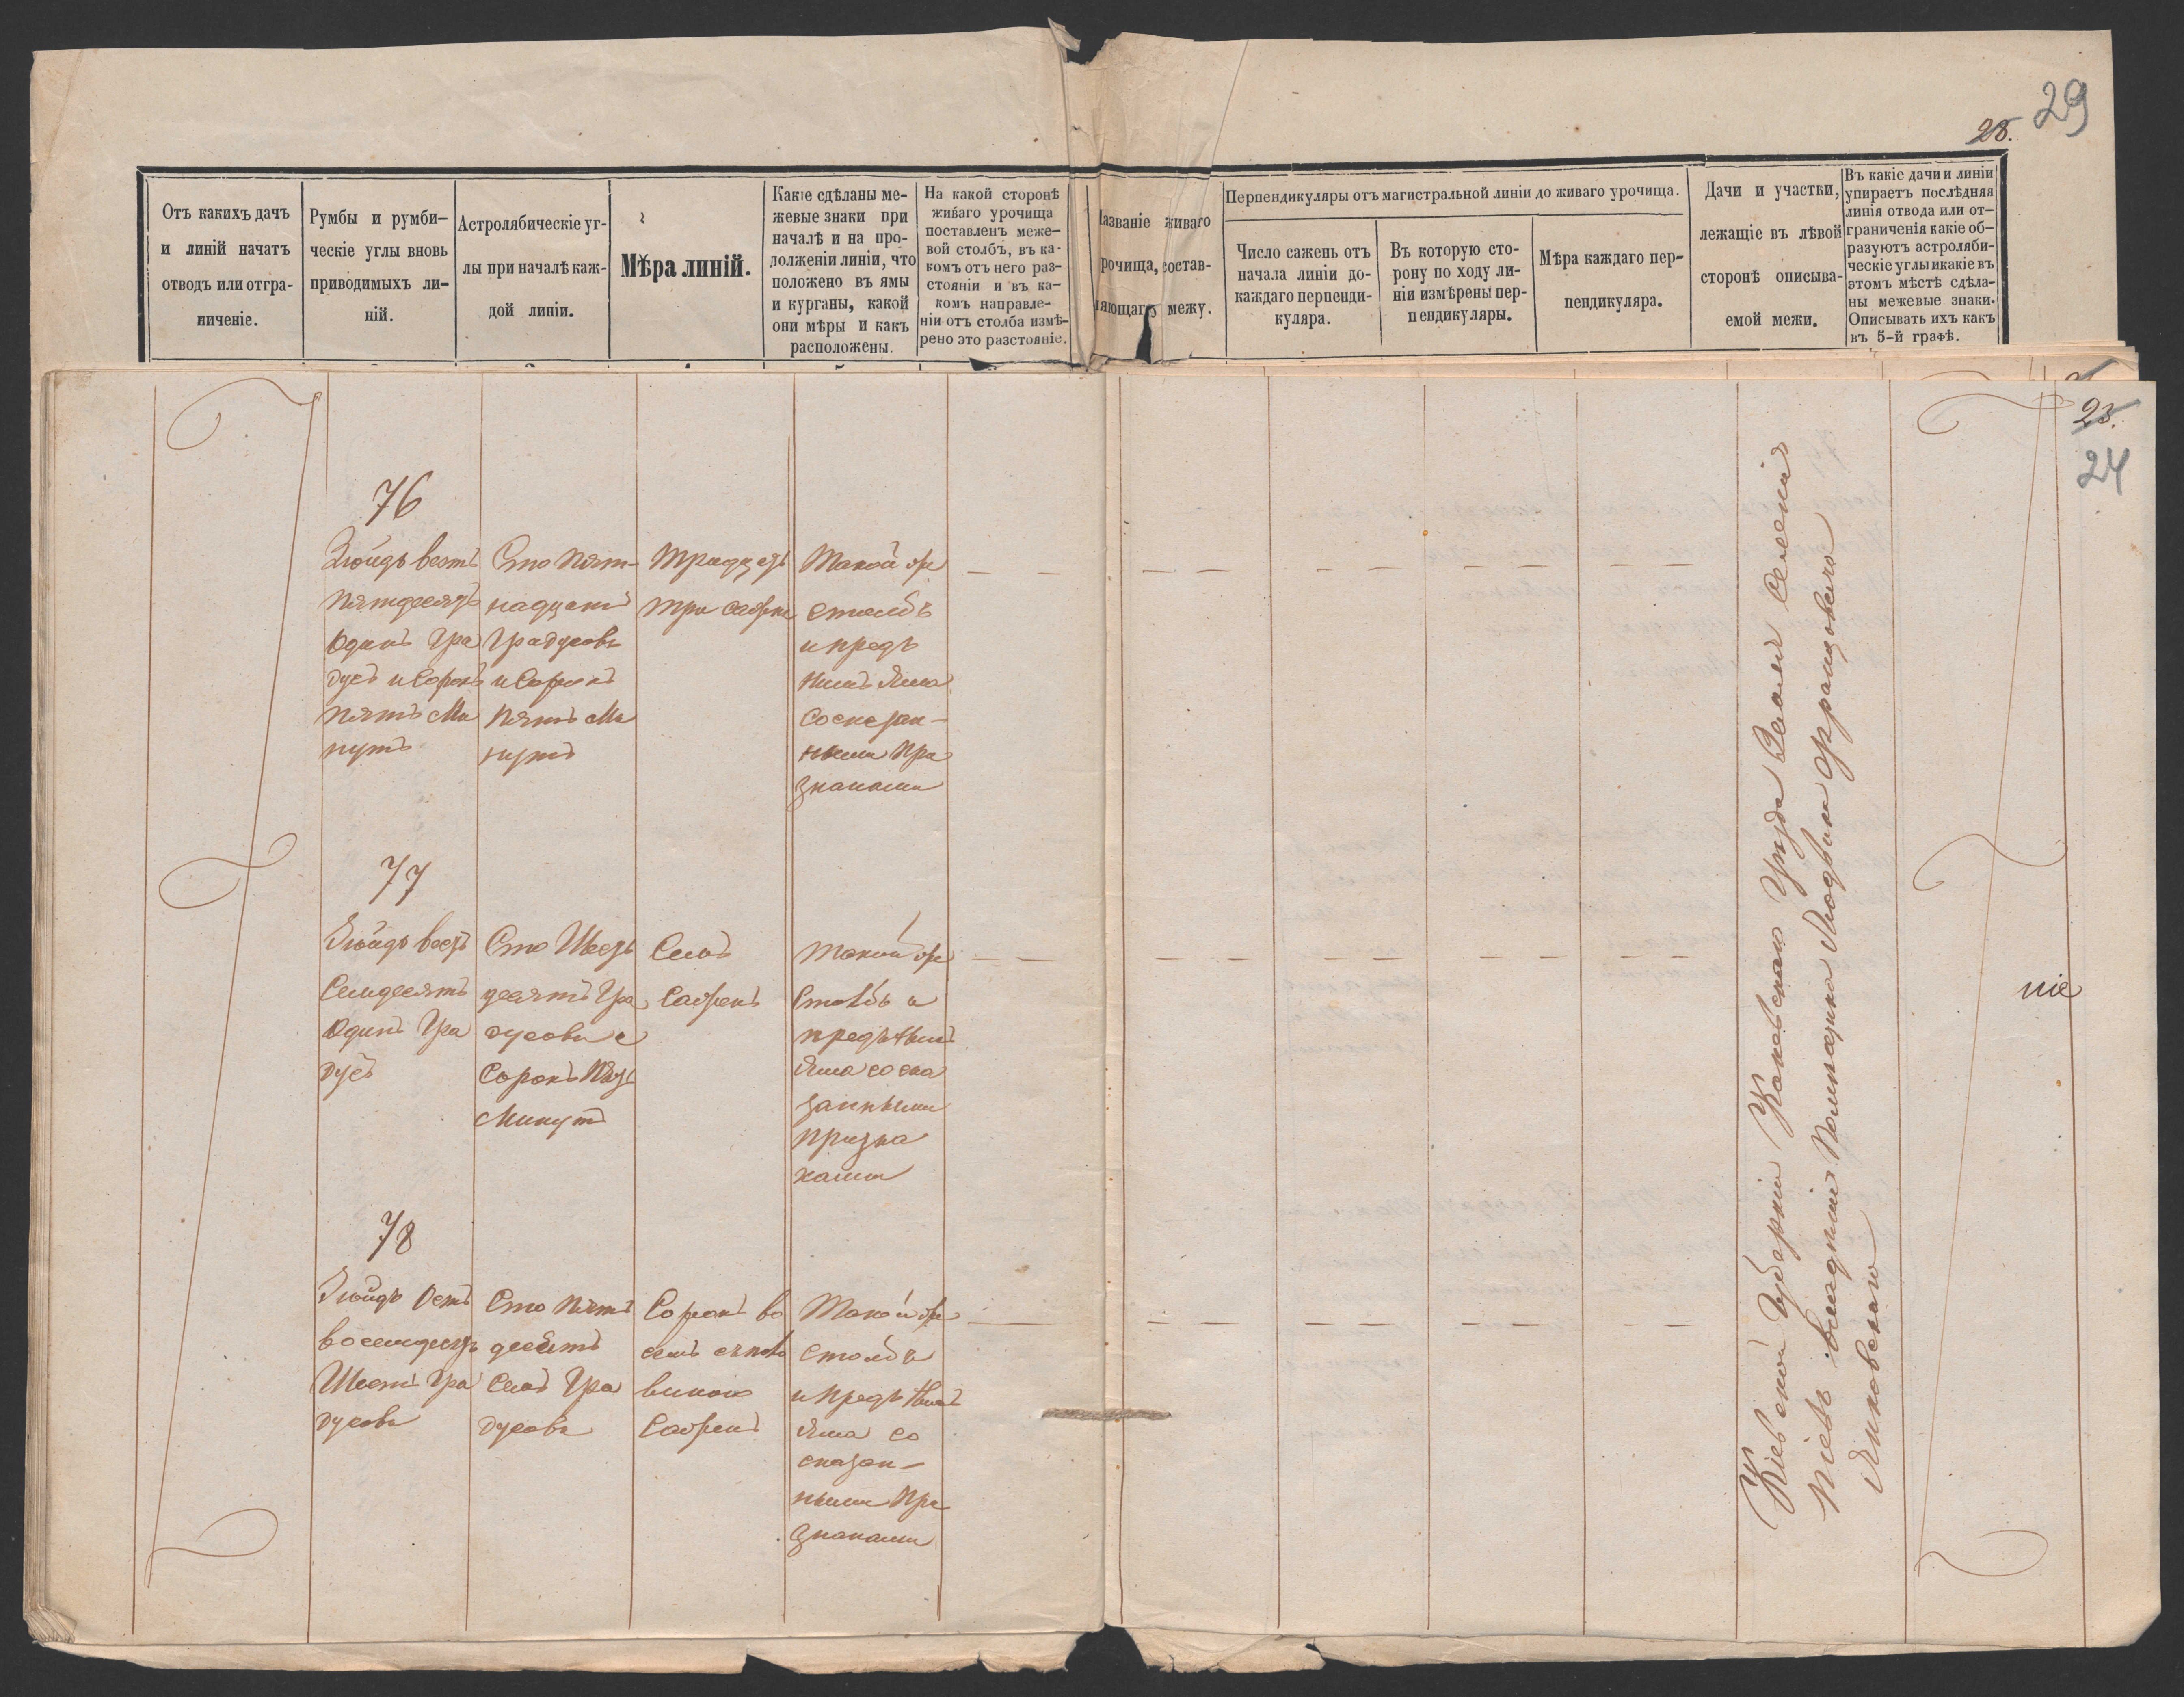 29
28.
Отъ какихъ дачъ
и линій начатъ
отводъ или отгра-
ниченіе.
Румбы и румби-
ческіе углы вновь
приводимыхъ ли-
ній.
Астролябическіе уг-
лы при началѣ каж-
дой линіи.
Мѣра линій.
Какіе сдѣланы ме-
жевые знаки при
началѣ и на про-
долженіи линіи, что
положено въ ямы
и курганы, какой
они мѣры и какъ
расположены.
На какой сторонѣ
живаго урочища
поставленъ меже-
вой столбъ, въ ка-
комъ отъ него раз-
стояніи и въ ка-
комъ направле-
ніи отъ столба измѣ-
рено это разстояніе.
Названіе живаго
рочища, состав-
ляющаго межу.
Перпендикуляры отъ магистральной линіи до живаго урочища.
Число сажень отъ
начала линіи до-
каждаго перпенди-
куляра.
Въ которую сто-
рону по ходу ли-
ніи измѣрены пер-
пендикуляры.
Мѣра каждаго пер-
пендикуляра.
Дачи и участки,
лежащіе въ лѣвой
сторонѣ описыва-
емой межи.
Въ какіе дачи и линіи
упираетъ послѣдняя
линія отвода или от-
граниченія какіе об-
разуютъ астроляби-
ческіе углы и какіе въ
этомъ мѣстѣ сдѣла-
ны межевые знаки.
Описывать ихъ какъ
въ 5-й графѣ.
23.
24
76
Зюйдъ вестъ
пятдесятъ
одинъ гра
дусъ и сорокъ
пять ми
нутъ
Сто пят-
надцать
градусовъ
и сорокъ
пять ми
нутъ
Тридцать
три сажни
Такой же
столбъ
и предъ
нимъ яма
со сказан-
ными при
знаками
77
Зюйдъ вестъ
Семдесятъ
одинъ гра
дусъ
Сто шесть
десятъ гра
дусовъ и
сорокъ пять
минутъ
Семь
сажень
Такой же
столбъ и
предъ нимъ
яма со ска
занными
призна
ками
78
Зюйдъ остъ
восемдесятъ
шесть гра
дусовъ
Сто пять
десятъ
семь гра
дусовъ
Сорокъ во
семь съ поло
виною
сажень
Такой же
столбъ
и предъ нимъ
яма со
сказан-
ными при
знаками
Кіевской Губерніи Каневскаго Уѣзда Земли Селенія
владѣнія Помѣщика Людвика Францовича
Янковскаго
ніе